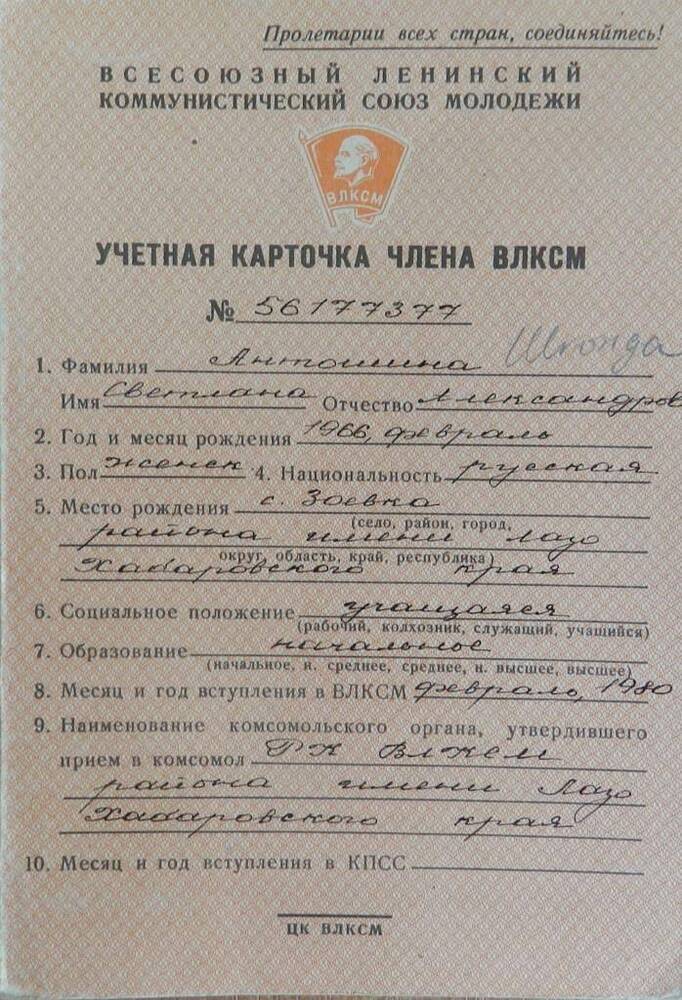 Пролетарии всех стран, соединяйтесь!
ВСЕСОЮЗНЫЙ ЛЕНИНСКИЙ
КОММУНИСТИЧЕСКИЙ СОЮЗ МОЛОДЕЖИ
ВЛКСМ
УЧЕТНАЯ КАРТОЧКА ЧЛЕНА ВЛКСМ
№ 56177377
1. Фамилия Антошина
Имя Светлана Отчество Александров
2. Год и месяц рождения 1966, февраль
3. Пол женск 4. Национальность русская
5. Место рождения с. Зоевка
(село, район, город,
района имени Лазо
округ, область, край, республика)
Хабаровского края
6. Социальное положение учащаяся
(рабочий, колхозник, служащий, учащийся)
7. Образование начальное
(начальное, н. среднее, среднее, н. высшее, высшее)
8. Месяц и год вступления в ВЛКСМ февраль, 1980
9. Наименование комсомольского органа, утвердившего
прием в комсомол РК ВЛКСМ
района имени Лазо
Хабаровского края
10. Месяц и год вступления в КПСС
ЦК ВЛКСМ